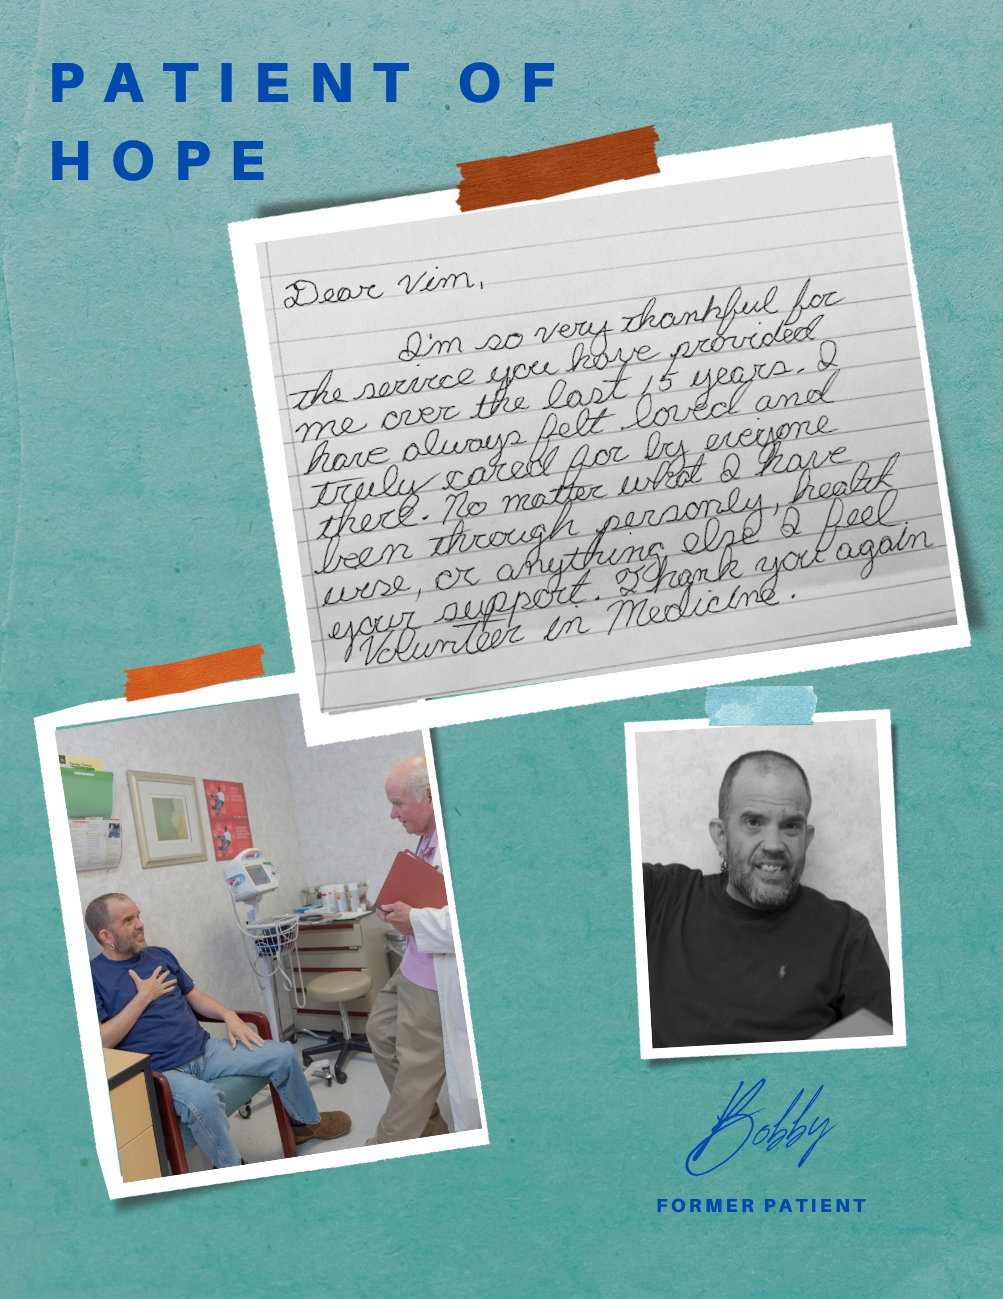 PATIENT OF
HOPE
Dear Vim,
I'm so very thankful for
the service you have provided
me over the last 15 years. I
have always felt loved and
truly cared for by everyone
there. No matter what I have
been through personly, health
wise, or anything else I feel
your support. Thank you again
Volunteer in Medicine.
Bobby
FORMER PATIENT